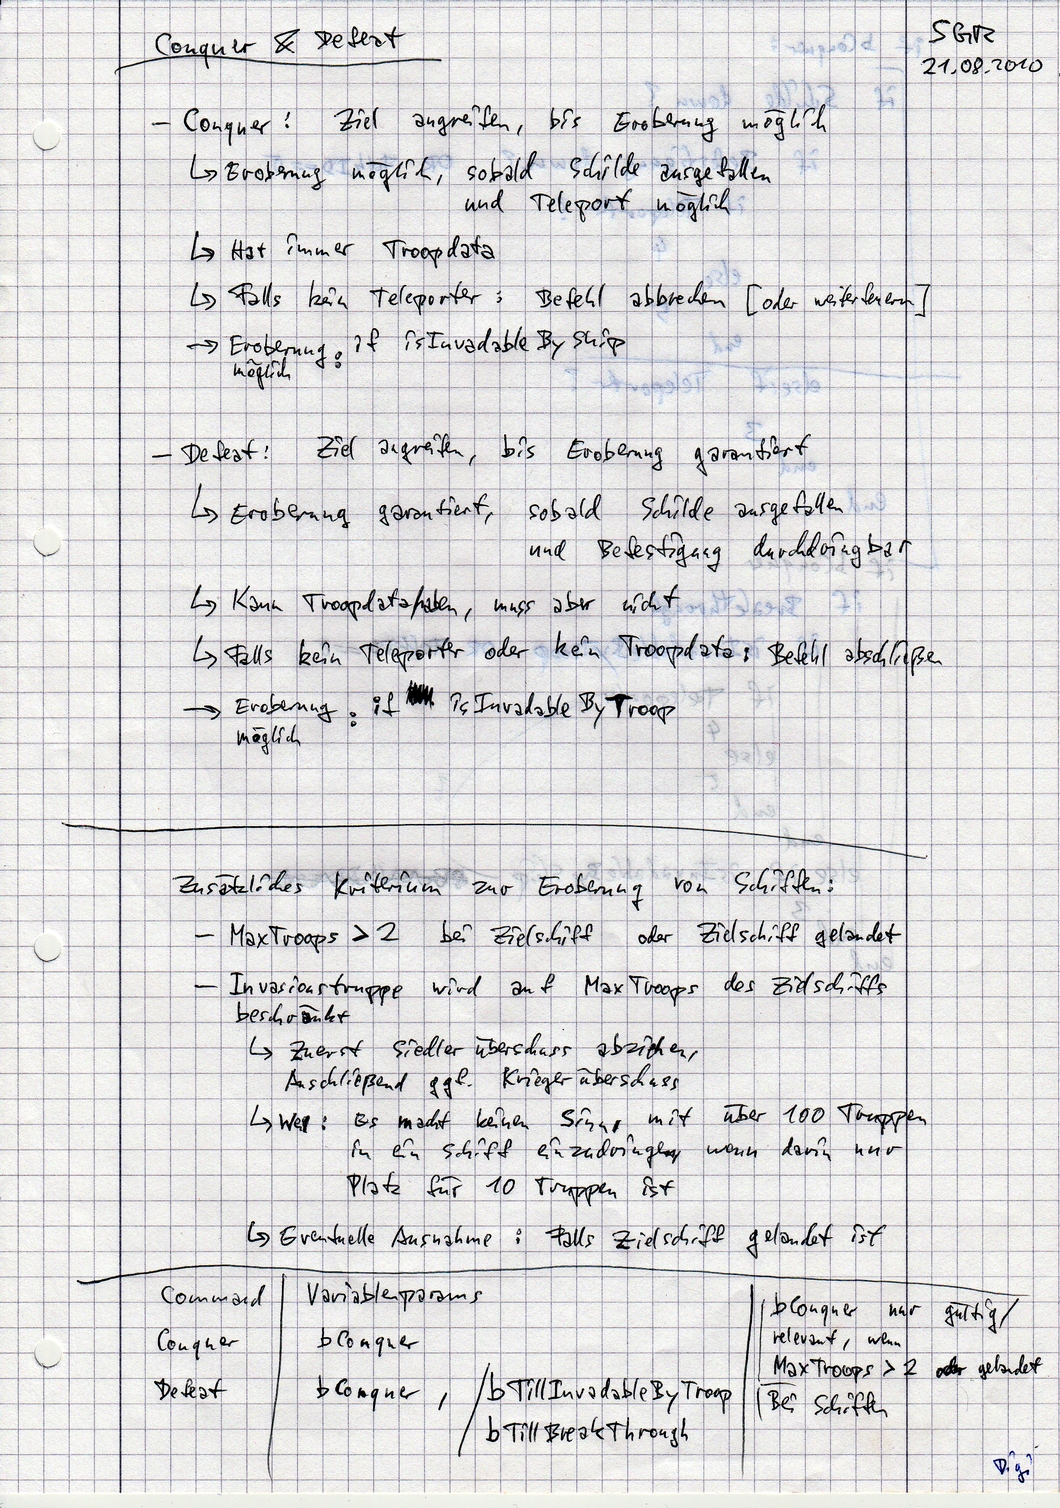 Conquer & Defeat
SGR
21.08.2010
- Conquer: Ziel angreifen, bis Eroberung möglich
↳ Eroberung möglich, sobald Schilde ausgefallen
und Teleport möglich
↳ Hat immer Troopdata
↳ Falls kein Teleporter: Befehl abbrechen [oder weiterfeuern]
→ Eroberung: if isInvadableByShip
möglich
- Defeat: Ziel angreifen, bis Eroberung garantiert
↳ Eroberung garantiert, sobald Schilde ausgefallen
und Befestigung durchdringbar
↳ Kann Troopdata haben, muss aber nicht
↳ Falls kein Teleporter oder kein Troopdata: Befehl abschließen
→ Eroberung: if isInvadableByTroop
möglich
Zusätzliches Kriterium zur Eroberung von Schiffen:
- MaxTroops > 2 bei Zielschiff oder Zielschiff gelandet
- Invasionstruppe wird auf MaxTroops des Zielschiffs
beschränkt
↳ Zuerst Siedlerüberschuss abziehen,
Anschließend ggf. Kriegerüberschuss
↳ Weil: Es macht keinen Sinn, mit über 100 Truppen
in ein Schiff einzudringen wenn darin nur
Platz für 10 Truppen ist
↳ Eventuelle Ausnahme: Falls Zielschiff gelandet ist
Command | Variablenparams
Conquer | bConquer
Defeat | bConquer, / bTillInvadableByTroop
bTillBreakThrough
bConquer nur gültig/
relevant, wenn
MaxTroops > 2 oder gelandet
Bei Schiffen
Digi